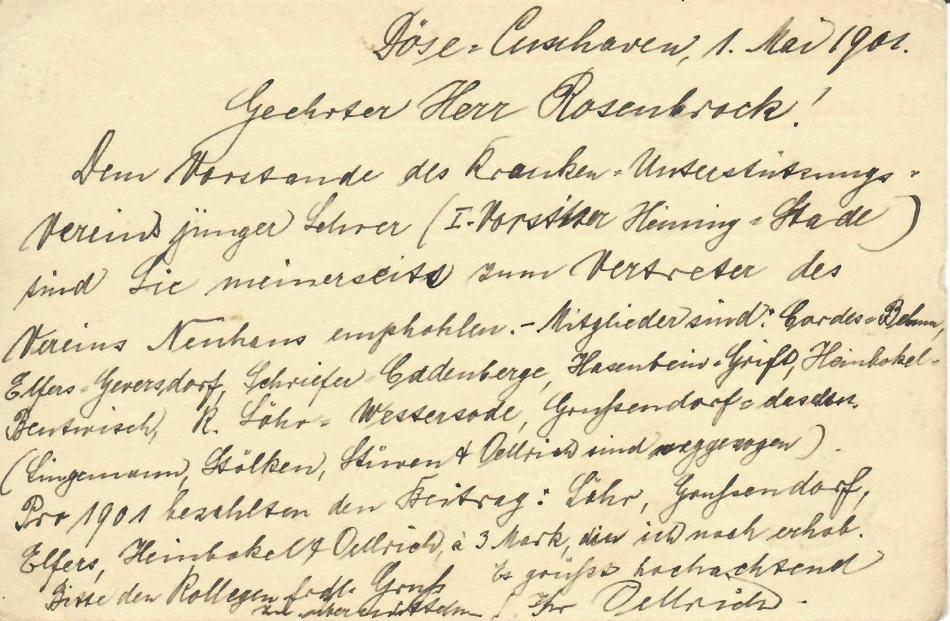 Döse-Cuxhaven, 1. Mai 1901.
Geehrter Herr Rosenbrock!
Dem Vorstande des Kranken-Unterstützungs-
Vereins junger Lehrer (I. Vorsitzer Henning-Stade)
sind Sie meinerseits zum Vertreter des
Vereins Neuhaus empfohlen. - Mitglieder sind: Cordes-
Elfers-Geversdorf, Schriefer-Cadenberge, Hasenbein-Grift, Heinbokel-
Bentwisch, R. Löhr-Westersode, Großendorf-
(Lingemann, Stölken, Stüven & Oellrich sind weggezogen).
Pro 1901 bezahlten den Beitrag: Löhr, Großendorf,
Elfers, Heinbokel & Oellrich, à 3 Mark, die ich noch erhob.
Es grüßt hochachtend
Bitte den Kollegen frdl. Gruß
zu übermitteln! Ihr Oellrich.